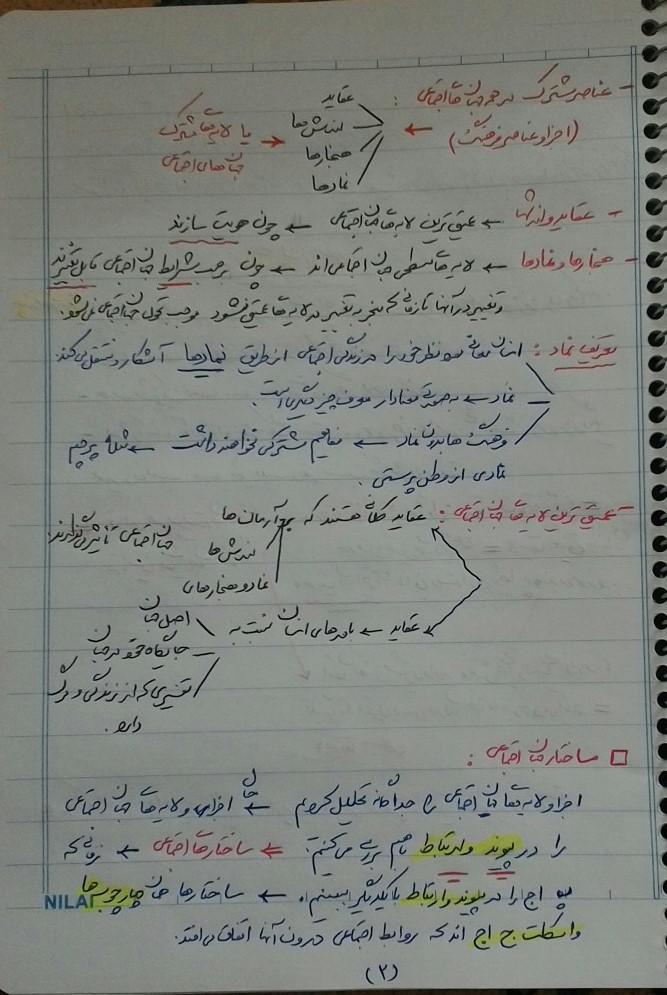 - عناصر مشترک در همه جهان های اجتماعی :
(اجزا و عناصر فرهنگ) ←
عقاید
ارزش ها
هنجارها
نمادها
→ یا لایه های مشترک
جهان های اجتماعی
- عقاید و ارزشها ← عمیق ترین لایه های جهان اجتماعی ← چون هویت سازند
- هنجارها و نمادها ← لایه های سطحی جهان اجتماعی اند ← چون برحسب شرایط جهان اجتماعی قابل تغییرند
و تغییر در آنها تا زمانی که منجر به تغییر در لایه های عمیق نشود موجب تحول جهان اجتماعی نمی شود.
تعریف نماد : انسان معانی مورد نظر خود را در زندگی اجتماعی از طریق نمادها آشکار و منتقل می کند.
نماد ← به صورتی معنادار معرف چیز دیگری است.
فرهنگ ها بدون نماد ← مفاهیم مشترکی نخواهند داشت ← مثلا پرچم
نمادی از وطن پرستی .
- عمیق ترین لایه های جهان اجتماعی : عقاید کلان هستند که بر آرمان ها
ارزش ها
نماد و هنجارهای
جهان اجتماعی تأثیر می گذارند.
عقاید ← باورهای انسان نسبت به
اصل جهان
جایگاه خود در جهان
تفسیری که از زندگی و مرگ
دارد .
□ ساختار جهان اجتماعی :
اجزا و لایه های جهان اجتماعی را جداگانه تحلیل کردیم ← حال اجزا و لایه های جهان اجتماعی
را در پیوند و ارتباط باهم بررسی می کنیم. ← ساختارهای اجتماعی ← زمانی که
ج اج را در پیوند و ارتباط با یکدیگر ببینیم. ← ساختارها همان چارچوب ها
و اسکلت ج اج اند که روابط اجتماعی درون آنها اتفاق می افتد.
NILA
(۲)